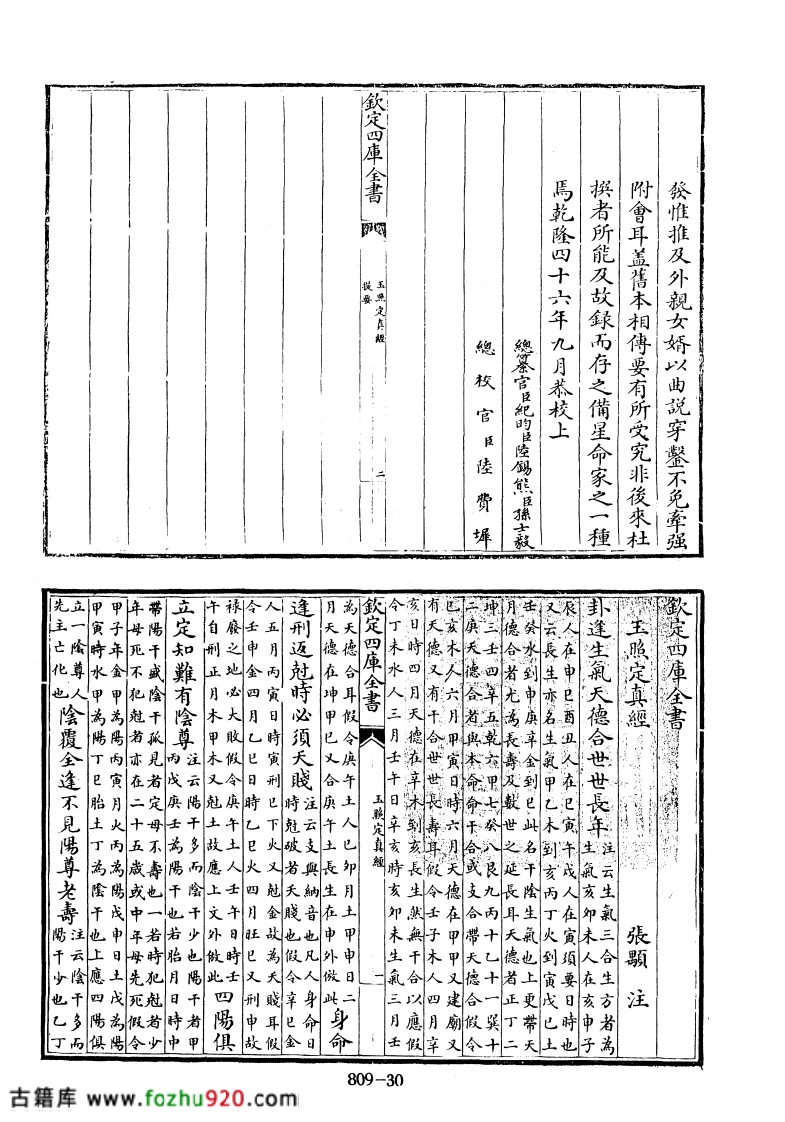 發惟推及外親女婿以曲説穿鑿不免牽强
附會耳盖舊本相傳要有所受究非後來杜
撰者所能及故録而存之備星命家之一種
焉乾隆四十六年九月恭校上
總纂官臣紀昀臣陸錫熊臣孫士毅
總校官臣陸費墀
欽定四庫全書
玉照定真經
提要
二
欽定四庫全書
玉照定真經
張顒 注
卦逢生氣天德合世世長年注云生氣三合生方者為
生氣亥卯未人在亥申子
辰人在申巳酉丑人在巳寅午戌人在寅須要日時也
又云長生亦名生氣甲乙木到亥丙丁火到寅戊巳土
壬癸水到申庚辛金到巳此名干陰生氣也上更帶天
月德合者尤為長壽及數世之延長耳天德者正丁二
坤三壬四辛五乾六甲七癸八艮九丙十乙十一巽十
二庚天德合者與本命命干合或支合帶天德合假令
巳亥木人六月甲寅日時六月天德在甲甲又建廟又
有天德又有干合世世長壽耳假令壬子木人四月辛
亥日時四月天德在辛木到亥長生然無干合以應假
令丁未水人三月壬午日辛亥時亥卯未生氣三月壬
欽定四庫全書
玉照定真經
一
為天德合耳假令庚午土人巳卯月土甲申日二
月天德在坤甲巳又合庚午土長生在申外倣此身命
逢刑返尅時必須夭賤注云支與納音也凡人身命日
時尅破者夭賤也假令辛巳金
人五月丙寅日時寅刑巳下火又尅金故為夭賤耳假
令壬申金四月乙巳日時乙巳火四月旺巳又刑申故
禄廢之地必大敗假令庚午土人壬午日時壬
午自刑正月木甲木又尅土故應上文外做此四陽俱
立定知難有陰尊注云陽干多而陰干少也陽干者甲
丙戊庚壬為陽干也若胎月日時中
帶陽干盛陰干孤見者定母不壽也一若時犯尅者少
年母死不犯尅者亦在二十五歲或中年母先死假令
甲子年金甲為陽丙寅月火丙為陽戊申日土戊為陽
甲寅時水甲為陽丁巳胎土丁為陰干也上應四陽俱
立一陰尊人
先主亡化也陰覆全逢不見陽尊老壽注云陰干多而
陽干少也乙丁
809-30
古籍库 www.fozhu920.com